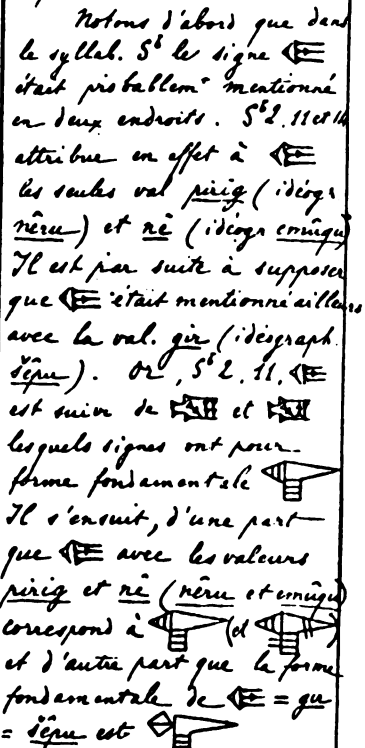 Notons d'abord que dans
le syllab. Sᵇ le signe
était probablemᵗ mentionné
en deux endroits. Sᵇ 2, 11 et 14
attribue en effet à
les seules val pirig (idéogr
nêru) et nê (idéogr emûqu)
Il est par suite à supposer
que était mentionné ailleurs
avec la val. gìr (idéograph.
šêpu). Or, Sᵇ 2, 11,
est suivi de et
lesquels signes ont pour
forme fondamentale
Il s'ensuit, d'une part
que avec les valeurs
pirig et nê (nêru et emûqu)
correspond à (et )
et d'autre part que la forme
fondamentale de = gìr
= šêpu est